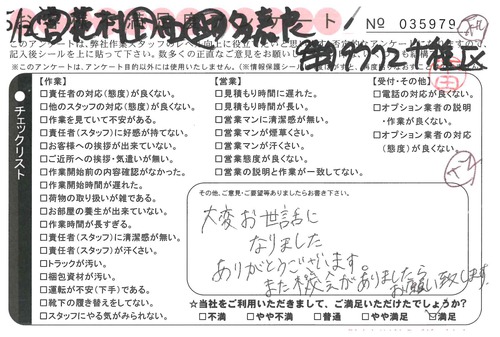 アンケート
№ 035979
このアンケートは、弊社作業スタッフのレベル向上に役立
記入後シールを上に貼って下さい。
※このアンケートは、アンケート目的以外には使用いたしません。
チェックリスト
【作業】
□責任者の対応(態度)が良くない。
□他のスタッフの対応(態度)が良くない。
□作業を見ていて不安がある。
□責任者(スタッフ)に好感が持てない。
□お客様への挨拶が出来ていない。
□ご近所への挨拶・気遣いが無い。
□作業開始前の内容確認がなかった。
□作業開始時間が遅れた。
□荷物の取り扱いが雑である。
□お部屋の養生が出来ていない。
□作業時間が長すぎる。
□責任者(スタッフ)に清潔感が無い。
□責任者(スタッフ)が汗くさい。
□トラックが汚い。
□梱包資材が汚い。
□運転が不安(下手)である。
□靴下の履き替えをしてない。
□スタッフにやる気がみられない。
【営業】
□見積もり時間に遅れた。
□見積もり時間が長い。
□営業マンに清潔感が無い。
□営業マンが煙草くさい。
□営業マンが汗くさい。
□営業態度が良くない。
□営業の説明と作業が一致してない。
【受付・その他】
□電話の対応が良くない。
□オプション業者の説明
・作業が良くない。
□オプション業者の対応
(態度)が良くない。
その他、ご意見・ご要望等ありましたらお書き下さい。
大変お世話に
なりました
ありがとうございます。
また機会がありましたら
お願い致します。
☆当社をご利用いただきまして、ご満足いただけたでしょうか?
□不満 □やや不満 □普通 □やや満足 ☑満足